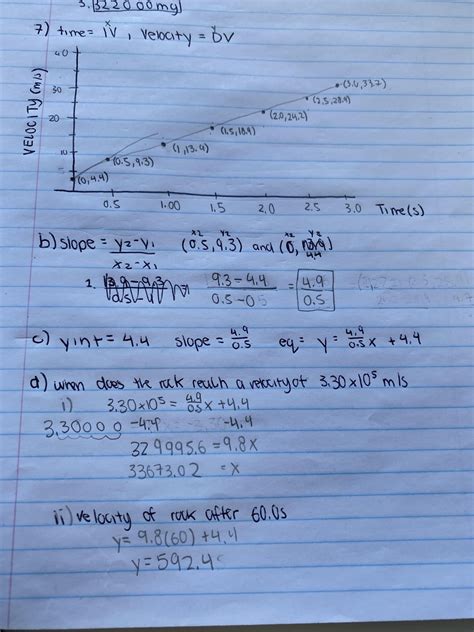 3. 322000mg
7) time = IV, velocity = DV
x y
VELOCITY (m/s)
40
30
20
10
(0,4.4)
(0.5,9.3)
(1,13.9)
(1.5,18.9)
(2.0,24.2)
(2.5,28.9)
(3.0,33.7)
0.5 1.00 1.5 2.0 2.5 3.0 Time(s)
x2 y2 x2 y2
b) slope = y2-y1 (0.5,9.3) and (0,
x2-x1 4.4
1. 9.3-4.4 = 4.9
0.5-0 0.5
c) yint = 4.4 slope = 4.9/0.5 eq= y = 4.9/0.5x +4.4
d) when does the rock reach a velocity of 3.30x10⁵ m/s
i) 3.30x10⁵ = 4.9/0.5x +4.4
3.30000 -4.4 -4.4
329995.6 = 9.8x
33673.02 = x
ii) velocity of rock after 60.0s
y = 9.8(60) +4.4
y = 592.4